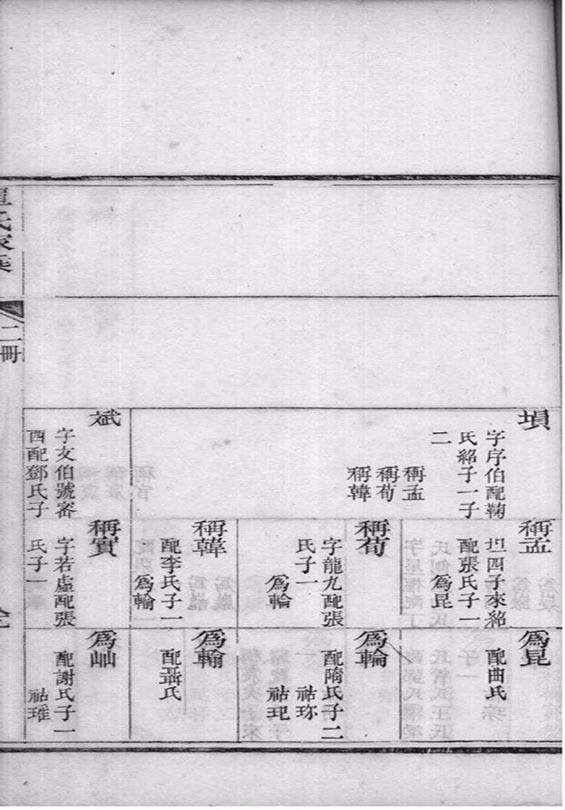 塤
字序伯配鞠
氏紹子一子
二
稱孟
稱荀
稱韓
稱孟
坦四子來紹
配張氏子一
爲昆
爲昆
配曲氏
稱荀
字龍九配張
氏子一
爲輪
爲輪
配隋氏子二
祜珎
祜玘
稱韓
配李氏子一
爲翰
爲翰
配聶氏
斌
字文伯號審
西配鄧氏子
稱賓
字若虛配張
氏子一
爲屾
配謝氏子一
祜璀
氏家乘
二冊